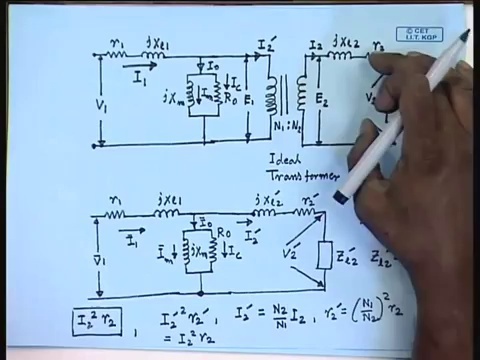 © CET
I.I.T. KGP
r₁ jxₑ₁ I₂′ I₂ jxₑ₂ r₂
I₁ I₀
V₁ jxₘ Iₘ R₀ I_c E₁ E₂ V₂
N₁ : N₂
Ideal
Transformer
r₁ jxₑ₁ jxₑ₂′ r₂′
Ī₁ Ī₀ I₂′
V̄₁ Īₘ jxₘ R₀ I_c V₂′ Zₑ₂′
I₂² r₂ , I₂′² r₂′ , I₂′ = N₂/N₁ I₂ , r₂′ = (N₁/N₂)² r₂
= I₂² r₂